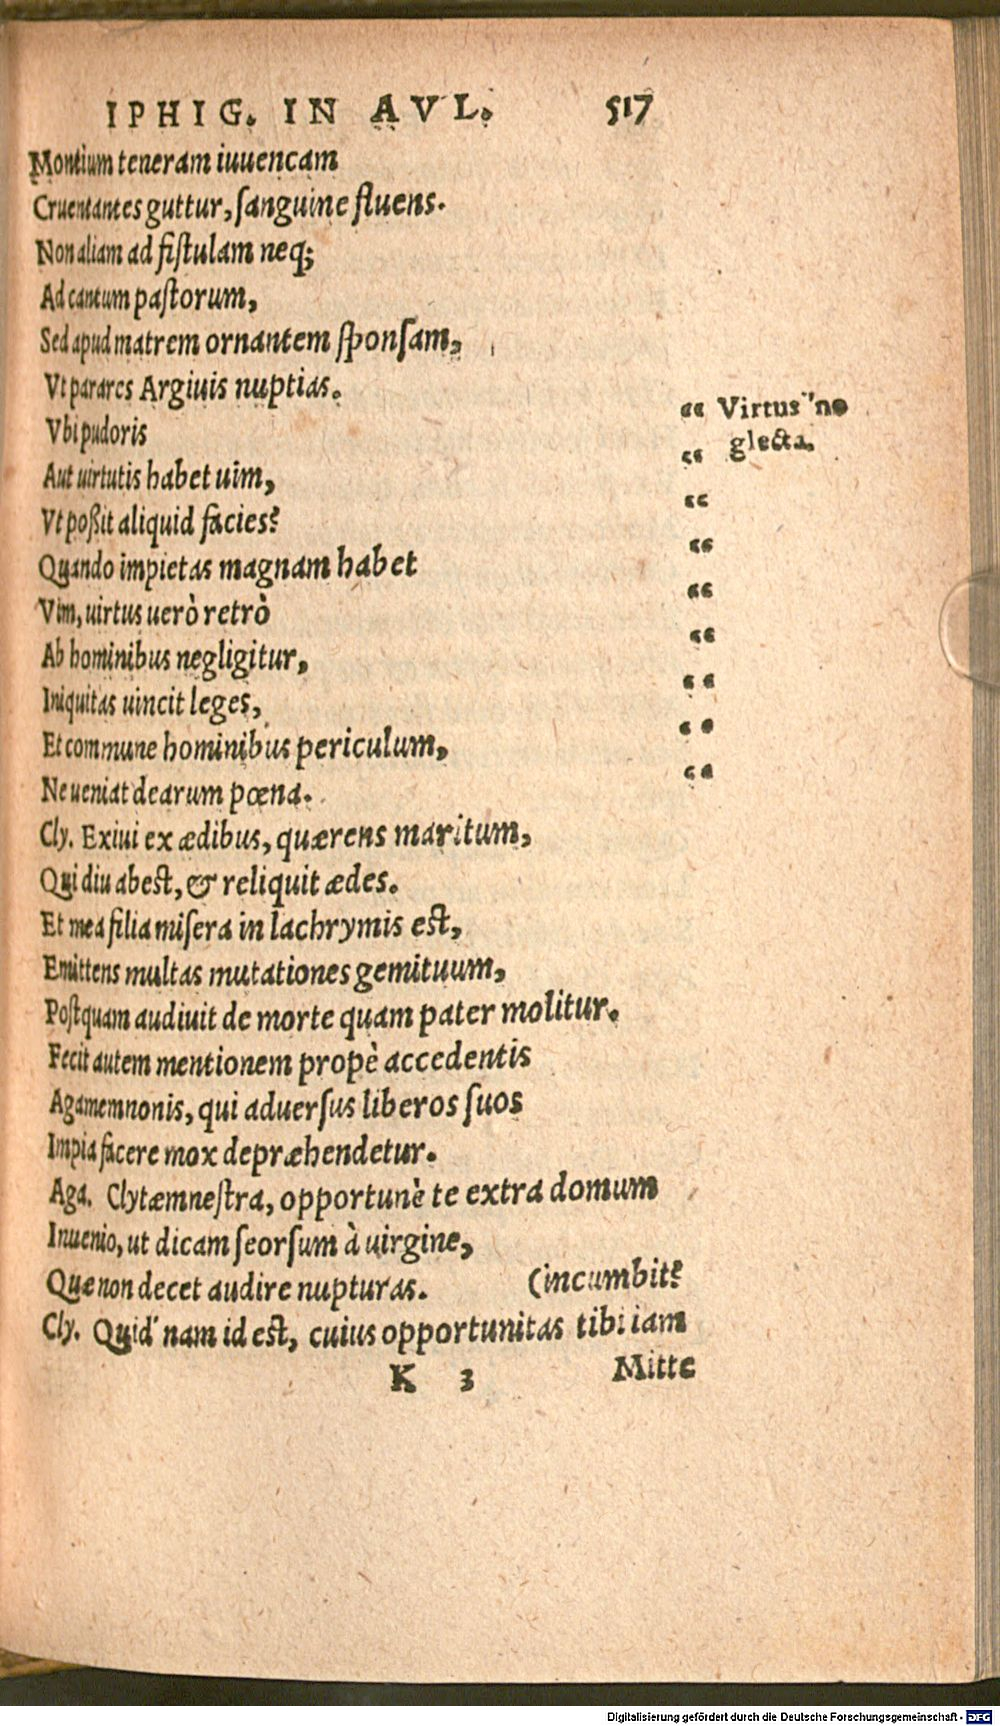 IPHIG. IN AVL. 517
Montium teneram iuuencam
Cruentantes guttur, ſanguine fluens.
Non aliam ad fiſtulam neq;
Ad cantum paſtorum,
Sed apud matrem ornantem ſponſam,
Vt parares Argiuis nuptias.
Vbi pudoris
“ Virtus ne
Aut uirtutis habet uim,
“ glecta.
Vt poßit aliquid facies?
“
Quando impietas magnam habet
“
Vim, uirtus uerò retrò
“
Ab hominibus negligitur,
“
Iniquitas uincit leges,
“
Et commune hominibus periculum,
“
Ne ueniat dearum pœna.
“
Cly. Exiui ex ædibus, quærens maritum,
Qui diu abeſt, & reliquit ædes.
Et mea filia miſera in lachrymis eſt,
Emittens multas mutationes gemituum,
Poſtquam audiuit de morte quam pater molitur.
Fecit autem mentionem propè accedentis
Agamemnonis, qui aduerſus liberos ſuos
Impia facere mox depræhendetur.
Aga. Clytæmneſtra, opportunè te extra domum
Inuenio, ut dicam ſeorſum à uirgine,
Quæ non decet audire nupturas. (incumbit?
Cly. Quid nam id eſt, cuius opportunitas tibi iam
K 3 Mitte
Digitalisierung gefördert durch die Deutsche Forschungsgemeinschaft - DFG